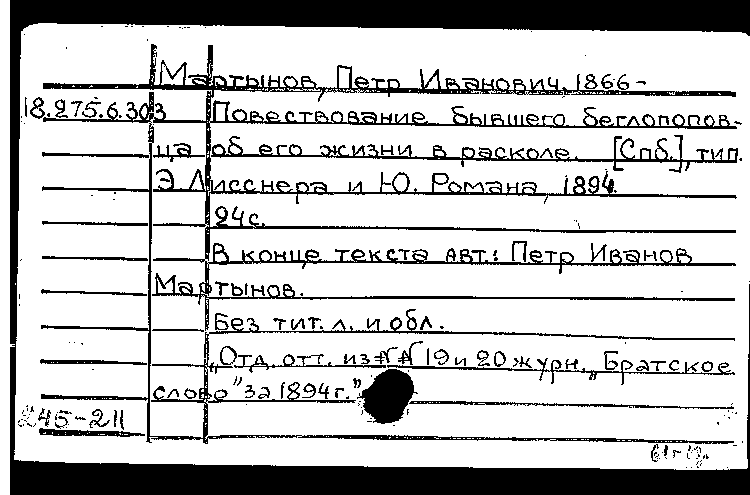 Мартынов, Петр Иванович, 1866-
18.275.6.303 Повествование бывшего беглопопов-
ца об его жизни в расколе. [Спб.], тип.
Э Лисснера и Ю. Романа, 1894.
24с.
В конце текста авт.: Петр Иванов
Мартынов.
Без тит. л. и обл.
„Отд. отт. из №№ 19 и 20 журн. „Братское
слово" за 1894 г."
245-211